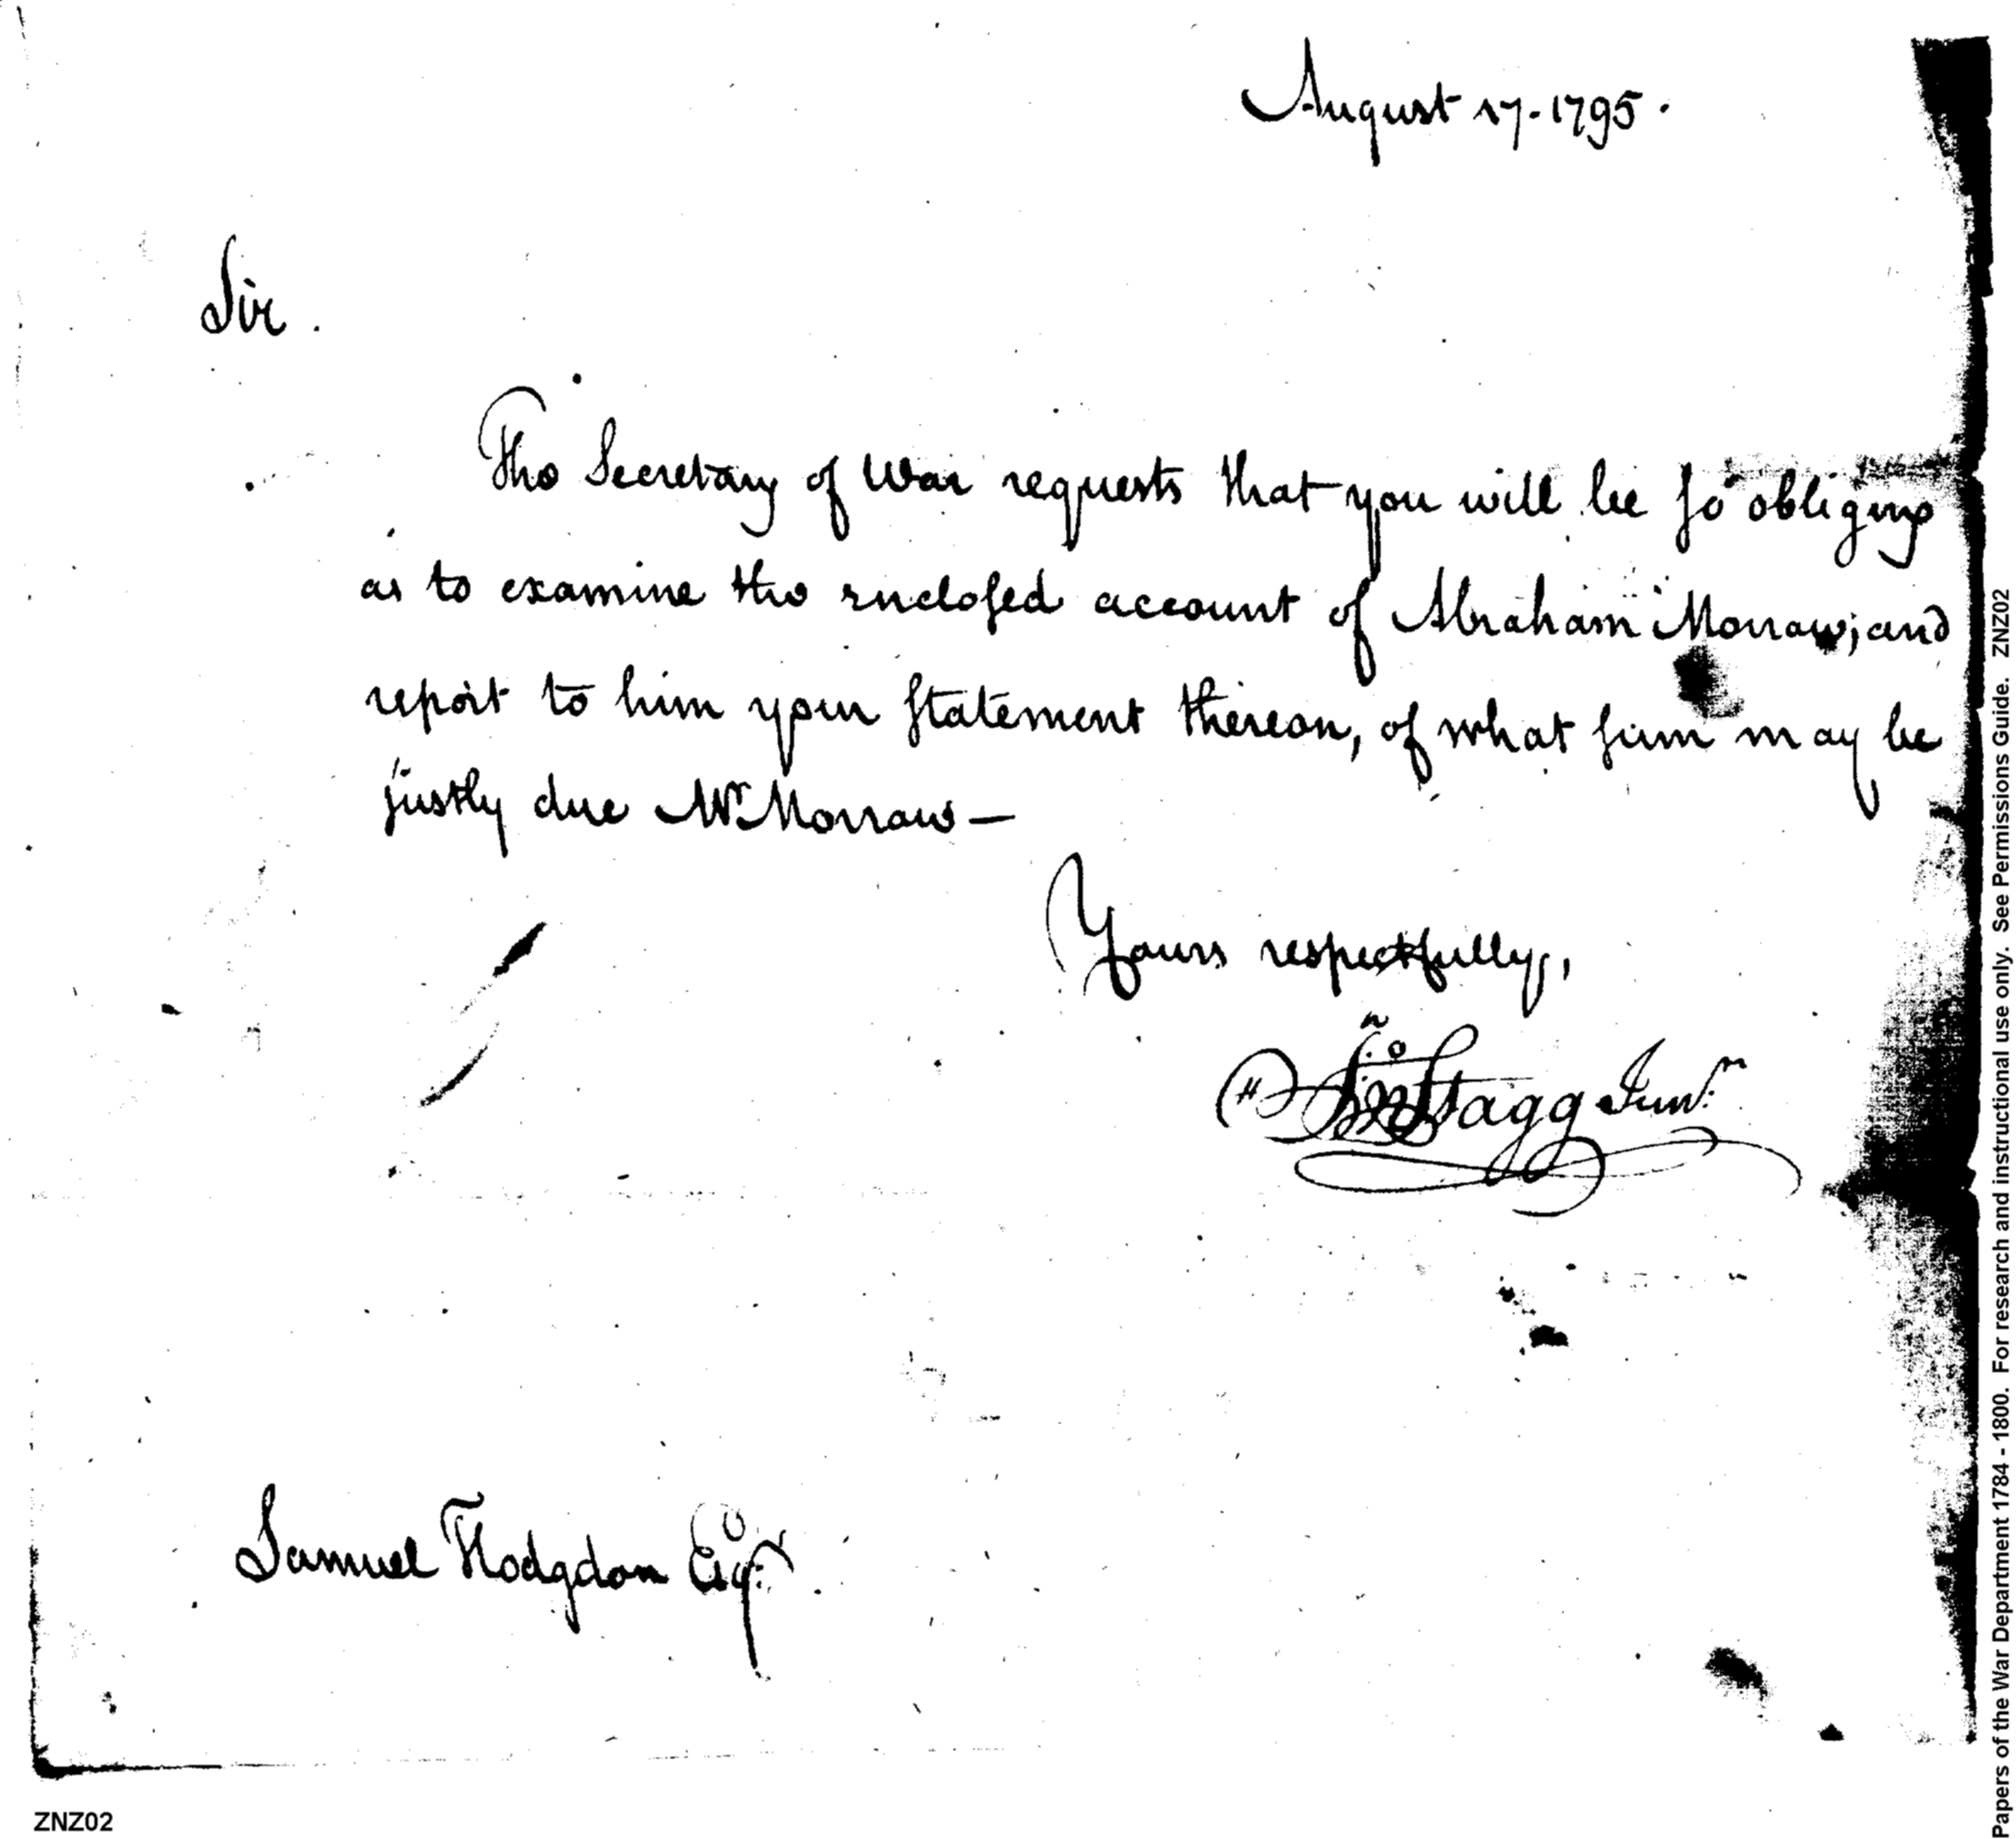 August 17. 1795.
Sir.
The Secretary of War requests that you will be so obliging
as to examine the enclosed account of Abraham Morraw; and
report to him your statement thereon, of what sum may be
justly due Mr Morraw—
Yours respectfully,
Jno Stagg Junr.
Samuel Hodgdon Esqr.
ZNZ02
Papers of the War Department 1784 - 1800. For research and instructional use only. See Permissions Guide. ZNZ02